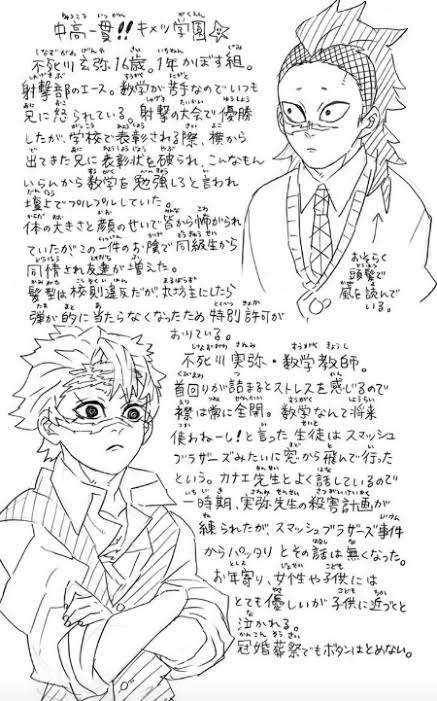 中高一貫!!キメツ学園☆
不死川玄弥16歳。1年かぼす組。
射撃部のエース。数学が苦手なのでいつも
兄に怒られている。射撃の大会で優勝
したが、学校で表彰される際、横から
出てきた兄に表彰状を破られ、こんなもん
いらんから数学を勉強しろと言われ
壇上でプルプルしていた。
体の大きさと顔のせいで皆から怖がられ
ていたがこの一件のお陰で同級生から
同情され友達が増えた。
髪型は校則違反だが丸坊主にしたら
弾が的に当たらなくなったため特別許可が
おりている。
おそらく
頭髪で
風を読んで
いる。
不死川実弥・数学教師。
首回りが詰まるとストレスを感じるので
襟は常に全開。数学なんて将来
使わねーし!と言った生徒はスマッシュ
ブラザーズみたいに窓から飛んで行った
という。カナエ先生とよく話しているので
一時期、実弥先生の殺害計画が
練られたが、スマッシュブラザーズ事件
からパッタリとその話は無くなった。
お年寄り、女性や子供には
とても優しいが子供に近づくと
泣かれる。
冠婚葬祭でもボタンはとめない。